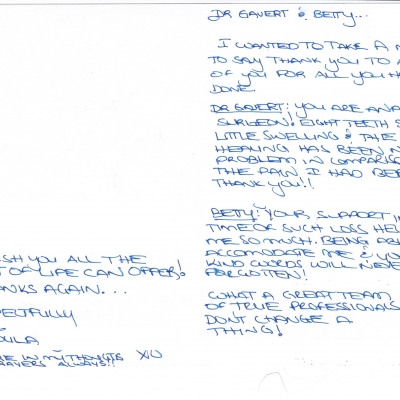 DR GAVERT & BETTY...
I WANTED TO TAKE A M
TO SAY THANK YOU TO A
OF YOU FOR ALL YOU HA
DONE.
DR GAVERT: YOU ARE AN A
SURGEON! EIGHT TEETH S
LITTLE SWELLING & THE
HEALING HAS BEEN N
PROBLEM IN COMPARISO
THE PAIN I HAD BEF
THANK YOU!!
BETTY: YOUR SUPPORT IN
TIME OF SUCH LOSS HEL
ME SO MUCH. BEING AB
ACCOMODATE ME & YOU
KIND WORDS WILL NEVE
FORGOTTEN!
WHAT A GREAT TEAM
OF TRUE PROFESSIONALS
DON'T CHANGE A
THING!
SH YOU ALL THE
T OF LIFE CAN OFFER!
NKS AGAIN...
PECTFULLY
ULA
E IN MY THOUGHTS XO
RAYERS ALWAYS!!